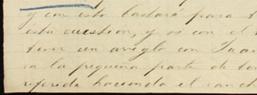 y con esto bastará para
esta cuestion, y así con el
tener un arreglo con Juan
sa la pequeña parte de
referida hacienda el ranch